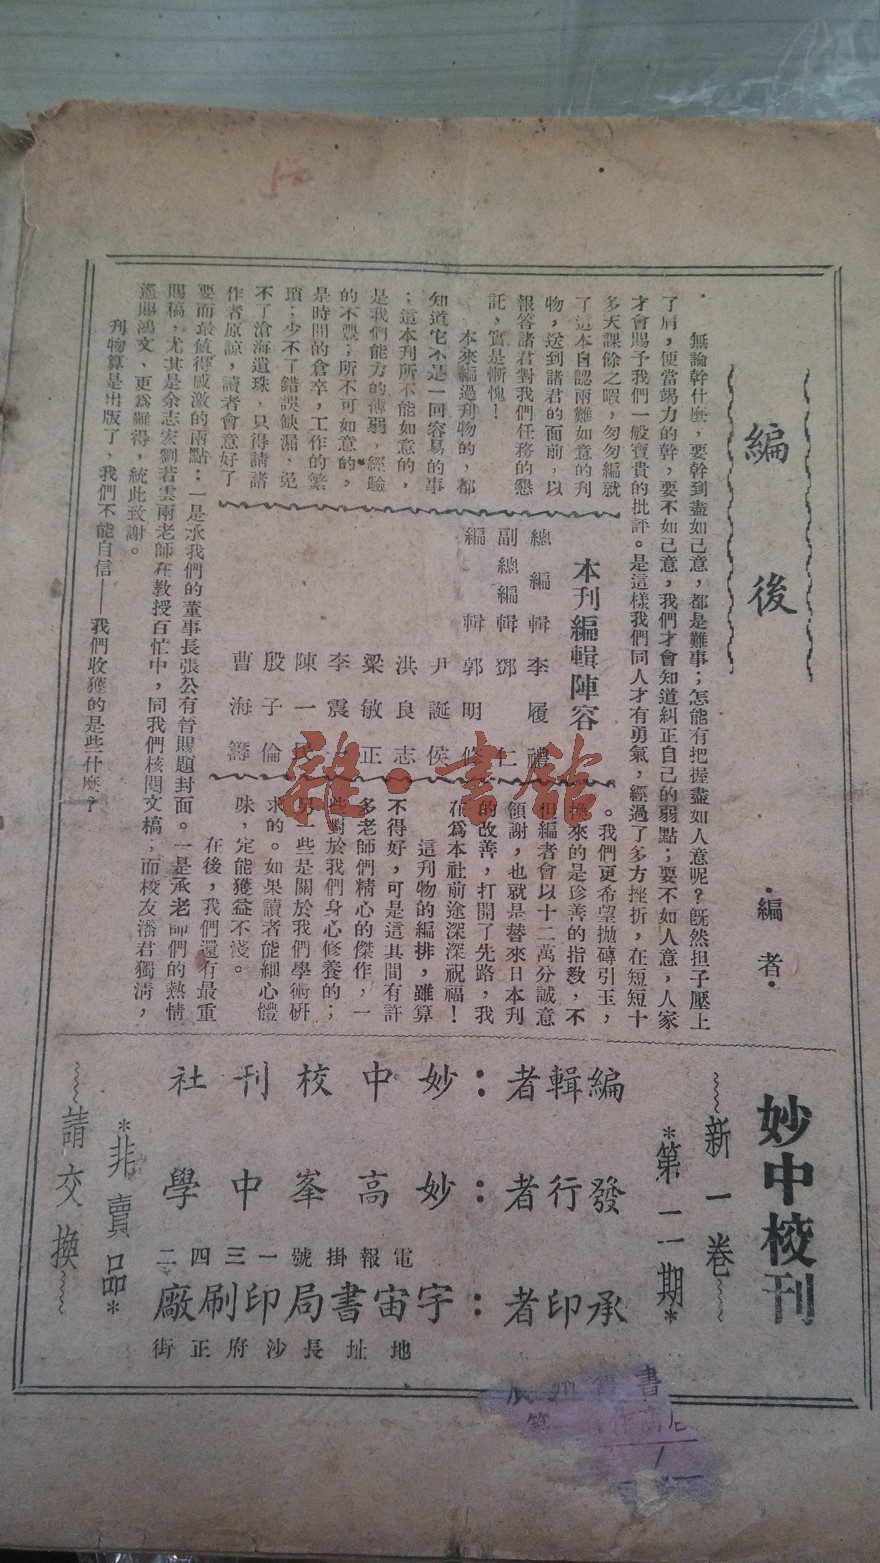 編後
·編者·
無論幹什麽，要幹到盡如己意，都是難事；怎能有把握盡如人意呢？旣然担子壓上
了肩，便當竭力的幹，要不如己意，我們才會知道糾正自己的弱點；要不如人意，人家
才會賜予我們一般寶貴的批評。是這樣我們同人才有勇氣，經過了多方挫折，在短短十
多天課餘之暇，匆匆編就
了這本自認兩難如意的刊
物，送到諸君的面前，以
報答諸君對我們任務的懇
託，實是慚愧！
本來編過刊物的，都
知道它不是一回容易的事
；這本刊所不能如意的，
是我們能力的薄弱，經驗
的不豐；所不可如意的，
是時間的倉卒，工作的繁
瑣；少不了錯誤缺漏，免
不了滄海遺珠，只得請諸
作者原諒，讀者會意好了
。我們更希望拋磚引玉，
換來的是珍善的指教，不
但編者會以十二萬分誠意
領謝，也就是替來日本刊
的改善，打開了先路，我
在爲本社前途深深祝福！
這刊物的編排，雖算
不得好，可是這其間有許
多老師們精心的傑作，一
些對於我們身心修養的；
另一些是關於我們學術硏
求的。如果讀者能細心體
味，定能獲益不淺。
在後，我們還有最重
要而最值得感激的兩點：一是承我們的董事長張公有晉賜題封面。一是承老師們的熱情
賜稿，尤其是余志宏劉若雲兩老師在敎授百忙中，同我們核閱文稿；而校友潘君獨淸，
遙賜鴻文，更爲難得，統此致謝。
刊物算是出版了，我們不能自信——我們收獲的是些什麽？
本刊編輯陣容
總編輯 李履禮
副總編輯 鄧仁
編輯 郭明修
尹誕侯
洪良志
梁敏正
李震一
陳一民
殷子倫
曹海籌
妙中校刊
新一卷
*第二期*
編輯者：妙中校刊社
發行者：妙高峯中學
電報掛號一三四二
承印者：宇宙書局印刷廠
地址長沙府正街
*非賣品*
請交換
雜·書館